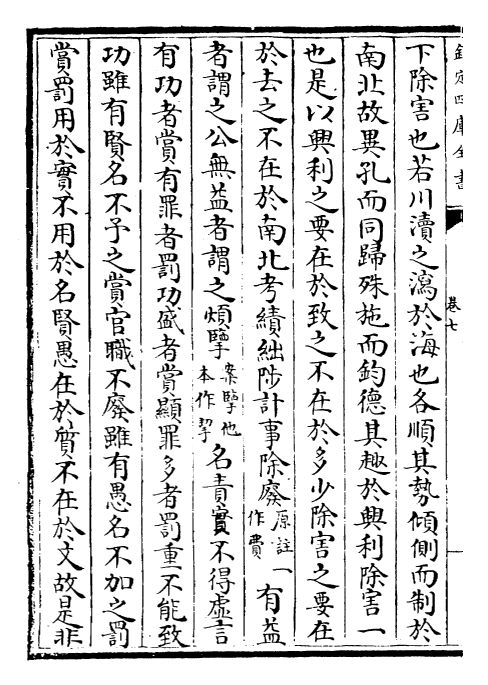 欽定四庫全書
卷七
下除害也若川瀆之瀉於海也各順其勢傾側而制於
南北故異孔而同歸殊施而鈞德其趣於興利除害一
也是以興利之要在於致之不在於多少除害之要在
於去之不在於南北考績絀陟計事除廢原註一作費有益
者謂之公無益者謂之煩擥案擥他本作挐名責實不得虛言
有功者賞有罪者罰功盛者賞顯罪多者罰重不能致
功雖有賢名不予之賞官職不廢雖有愚名不加之罰
賞罰用於實不用於名賢愚在於質不在於文故是非